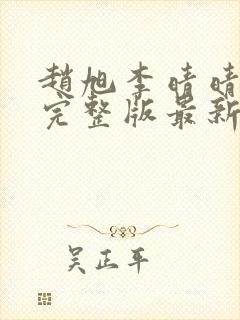 趙旭李晴晴
完整版最新
吴正平